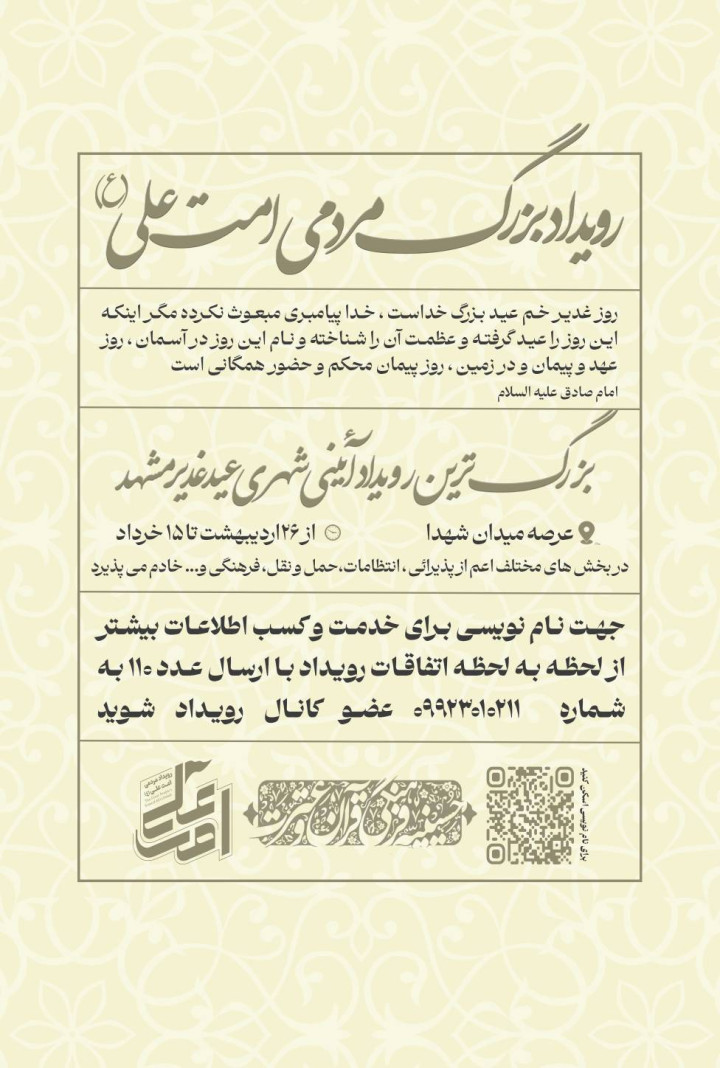 رویداد بزرگ مردمی امت علی (ع)
روز غدیر خم عید بزرگ خداست ، خدا پیامبری مبعوث نکرده مگر اینکه
این روز را عید گرفته و عظمت آن را شناخته و نام این روز در آسمان ، روز
عهد و پیمان و در زمین ، روز پیمان محکم و حضور همگانی است
امام صادق علیه السلام
بزرگ ترین رویداد آئینی شهری عید غدیر مشهد
عرصه میدان شهدا
از ۲۶ اردیبهشت تا ۱۵ خرداد
در بخش های مختلف اعم از پذیرائی ، انتظامات، حمل و نقل، فرهنگی و... خادم می پذیرد
جهت نام نویسی برای خدمت و کسب اطلاعات بیشتر
از لحظه به لحظه اتفاقات رویداد با ارسال عدد ۱۱۰ به
شماره ۰۹۹۲۳۰۱۰۲۱۱ عضو کانال رویداد شوید
برای نام نویسی اسکن کنید
حسینیه فرهنگی قرآن و عترت
رویداد مردمی
امت علی (ع)
امت علی